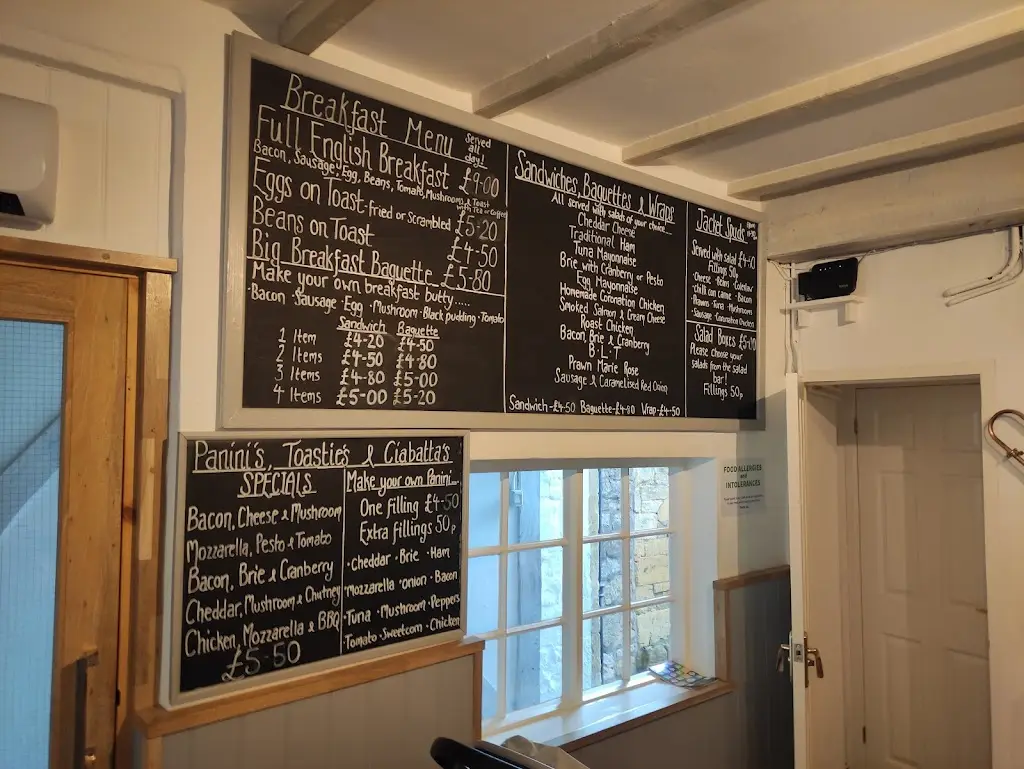 Breakfast Menu Served all day!
Full English Breakfast £9-00
Bacon, Sausage, Egg, Beans, Tomato, Mushrooms & Toast
with Tea or Coffee
Eggs on Toast - fried or Scrambled £5-20
Beans on Toast £4-50
Big Breakfast Baguette £5-80
Make your own breakfast butty.....
·Bacon ·Sausage ·Egg ·Mushroom ·Black pudding ·Tomato
Sandwich Baguette
1 Item £4-20 £4-50
2 Items £4-50 £4-80
3 Items £4-80 £5-00
4 Items £5-00 £5-20
Sandwiches, Baguettes & Wraps
All served with salads of your choice...
Cheddar Cheese
Traditional Ham
Tuna Mayonnaise
Brie with Cranberry or Pesto
Egg Mayonnaise
Homemade Coronation Chicken
Smoked Salmon & Cream Cheese
Roast Chicken
Bacon, Brie & Cranberry
B·L·T
Prawn Marie Rose
Sausage & Caramelised Red Onion
Sandwich-£4-50 Baguette-£4-80 Wrap-£4-50
Jacket Spuds
Served with salad
Fillings 50p
·Cheese ·Beans ·Coleslaw
·chilli con carne ·Bacon
·Prawns ·Tuna ·Mushrooms
·Sausage ·Coronation Chicken
Salad Boxes
Please choose your
salads from the salad
bar!
Fillings 50p
Panini's, Toasties & Ciabatta's
SPECIALS
Bacon, Cheese & Mushroom
Mozzarella, Pesto & Tomato
Bacon, Brie & Cranberry
Cheddar, Mushroom & Chutney
Chicken, Mozzarella & BBQ
£5-50
Make your own Panini...
One filling £4-50
Extra fillings 50p
·Cheddar ·Brie ·Ham
·mozzarella ·onion ·Bacon
·Tuna ·Mushroom ·Peppers
·Tomato ·Sweetcorn ·Chicken
FOOD ALLERGIES
and
INTOLERANCES